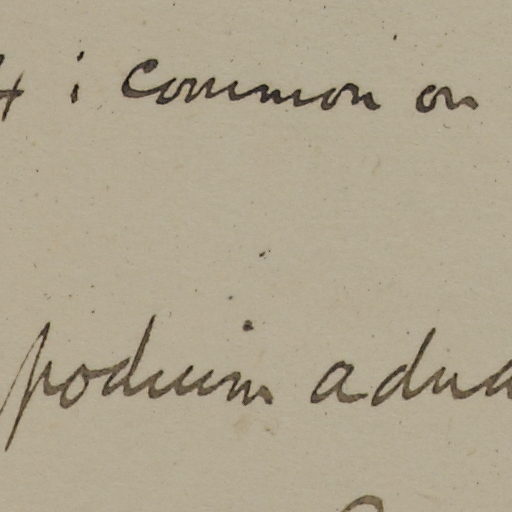 4 ; common on
podium adna